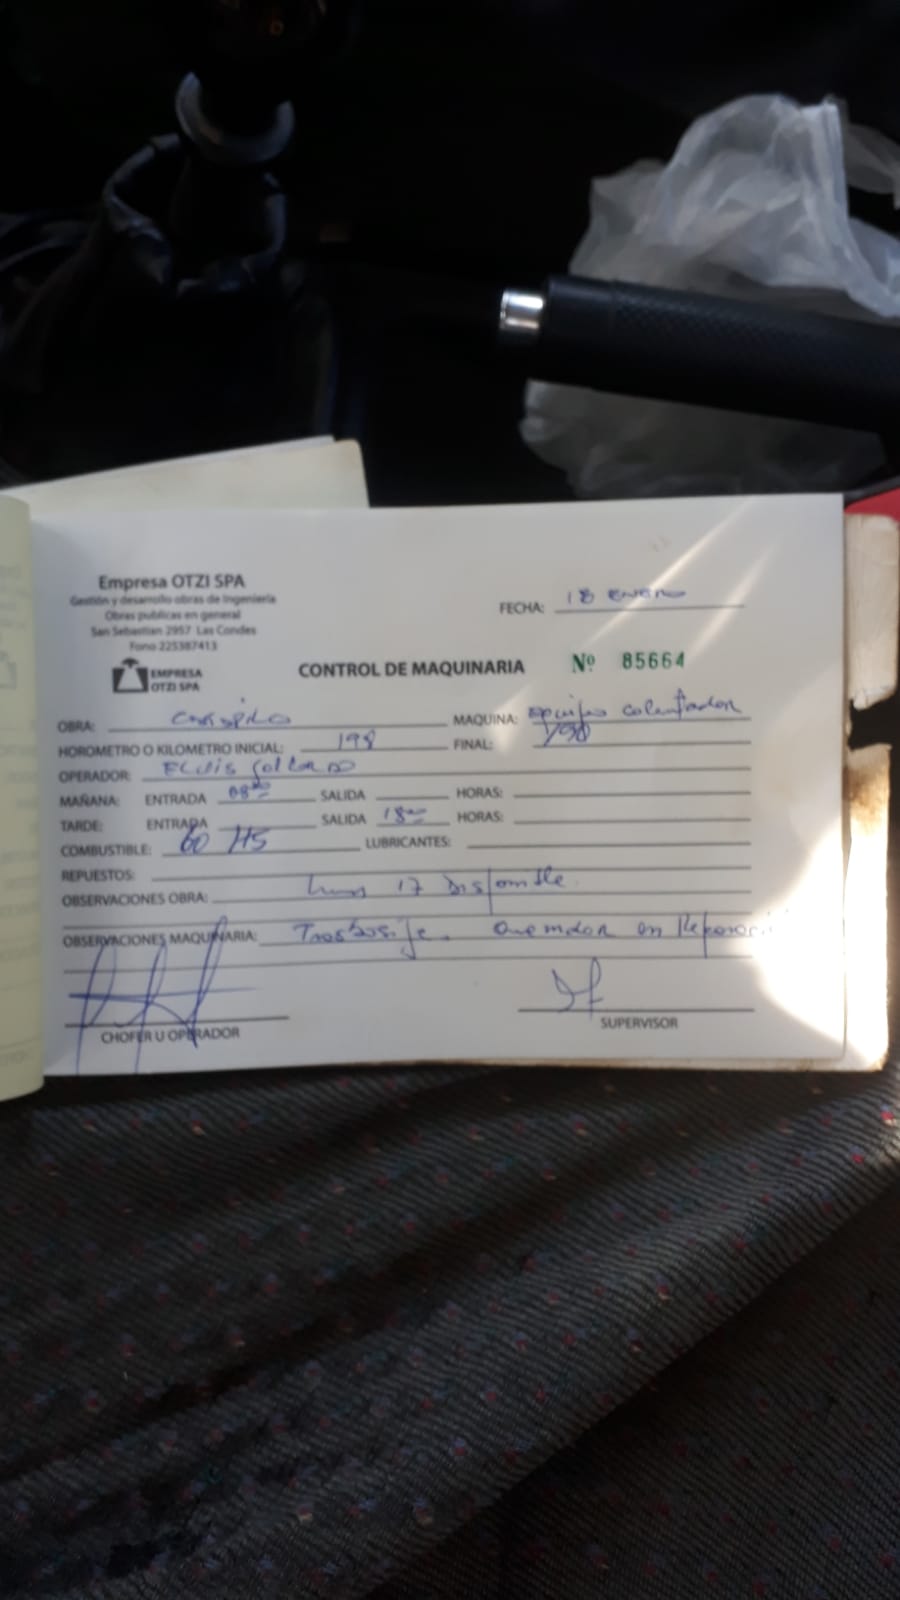 Empresa OTZI SPA
Gestión y desarrollo obras de Ingeniería
Obras publicas en general
San Sebastian 2957 Las Condes
Fono 225387413
EMPRESA
OTZI SPA
FECHA: 18 ENERO
CONTROL DE MAQUINARIA Nº 85664
OBRA: MAQUINA: equipo calentador
HOROMETRO O KILOMETRO INICIAL: 198 FINAL: 198
OPERADOR: ELVIS GALLARDO
MAÑANA: ENTRADA 08:00 SALIDA HORAS:
TARDE: ENTRADA SALIDA 18:00 HORAS:
COMBUSTIBLE: 60 LTS LUBRICANTES:
REPUESTOS:
OBSERVACIONES OBRA: 17 Disponible.
OBSERVACIONES MAQUINARIA: Trasbasije. Quemador en Reparación
CHOFER U OPERADOR
SUPERVISOR